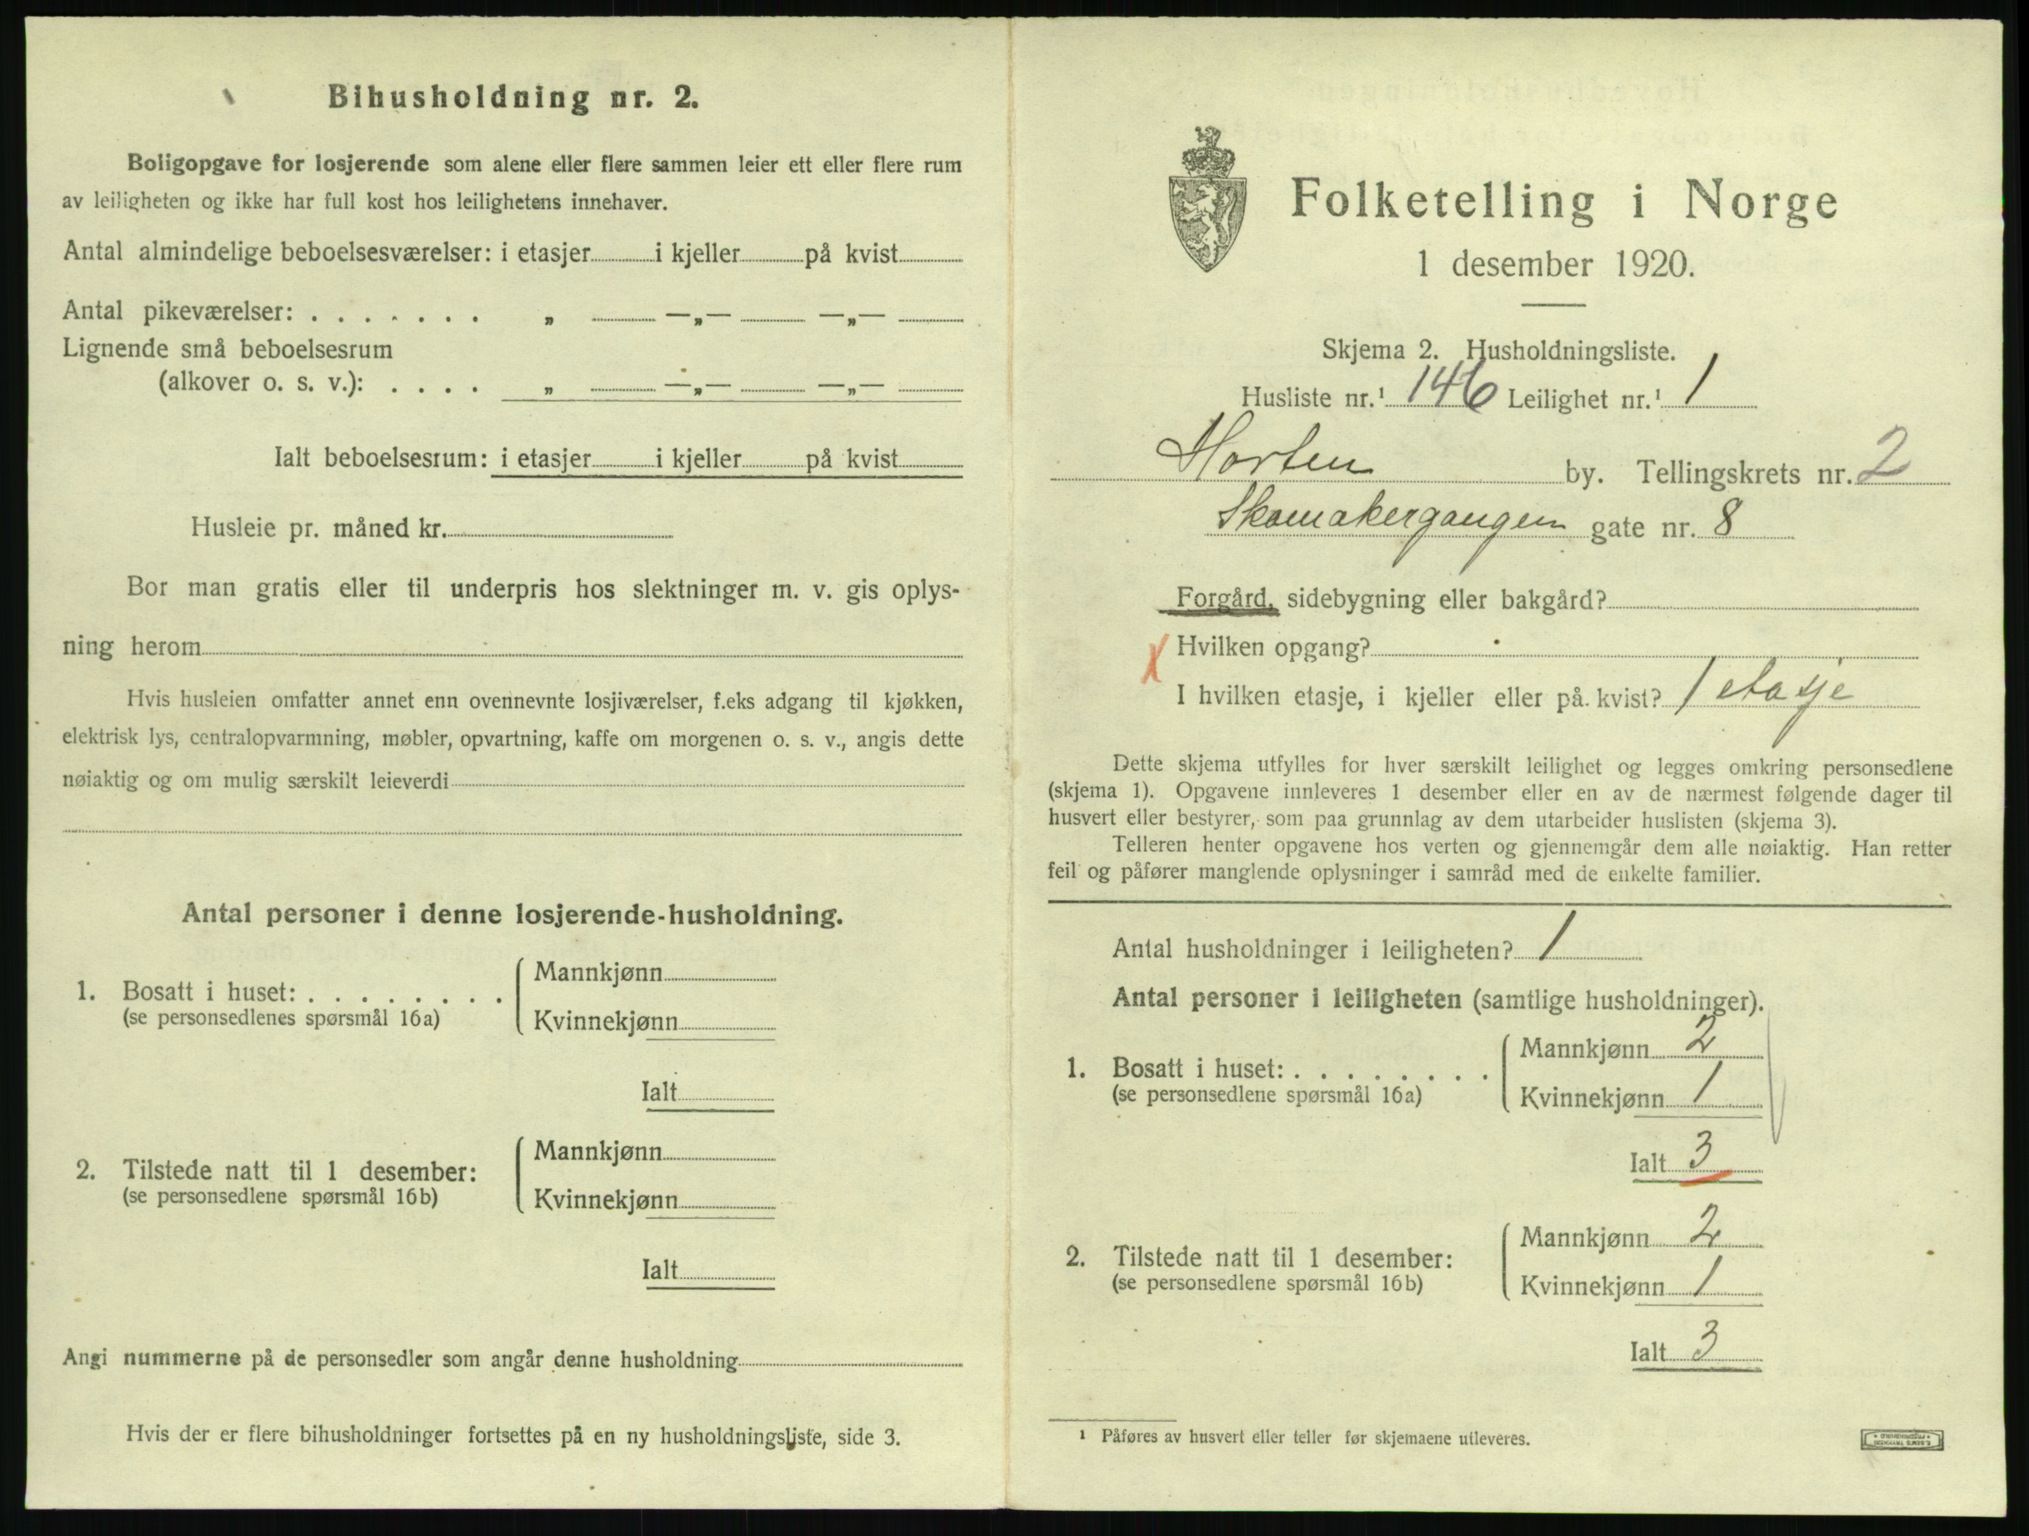 Bihusholdning nr. 2.
Boligopgave for losjerende som alene eller flere sammen leier ett eller flere rum
av leiligheten og ikke har full kost hos leilighetens innehaver.
Antal almindelige beboelsesværelser: i etasjer i kjeller på kvist
Antal pikeværelser: . . . . . . . „ —„— —„—
Lignende små beboelsesrum
(alkover o. s. v.): . . . . „ —„— —„—
Ialt beboelsesrum: i etasjer i kjeller på kvist
Husleie pr. måned kr.
Bor man gratis eller til underpris hos slektninger m. v. gis oplys-
ning herom
Hvis husleien omfatter annet enn ovennevnte losjiværelser, f.eks adgang til kjøkken,
elektrisk lys, centralopvarmning, møbler, opvartning, kaffe om morgenen o. s. v., angis dette
nøiaktig og om mulig særskilt leieverdi
Antal personer i denne losjerende-husholdning.
1. Bosatt i huset: . . . . . . . . Mannkjønn
(se personsedlenes spørsmål 16a) Kvinnekjønn
Ialt
2. Tilstede natt til 1 desember: Mannkjønn
(se personsedlene spørsmål 16b) Kvinnekjønn
Ialt
Angi nummerne på de personsedler som angår denne husholdning
Hvis der er flere bihusholdninger fortsettes på en ny husholdningsliste, side 3.
Folketelling i Norge
1 desember 1920.
Skjema 2. Husholdningsliste.
Husliste nr.¹ 146 Leilighet nr.¹ 1
Horten by. Tellingskrets nr. 2
Skomakergangen gate nr. 8
Forgård, sidebygning eller bakgård?
X Hvilken opgang?
I hvilken etasje, i kjeller eller på kvist? 1 etasje
Dette skjema utfylles for hver særskilt leilighet og legges omkring personsedlene
(skjema 1). Opgavene innleveres 1 desember eller en av de nærmest følgende dager til
husvert eller bestyrer, som paa grunnlag av dem utarbeider huslisten (skjema 3).
Telleren henter opgavene hos verten og gjennemgår dem alle nøiaktig. Han retter
feil og påfører manglende oplysninger i samråd med de enkelte familier.
Antal husholdninger i leiligheten? 1
Antal personer i leiligheten (samtlige husholdninger).
1. Bosatt i huset: . . . . . . . . Mannkjønn 2
(se personsedlene spørsmål 16a) Kvinnekjønn 1
Ialt 3
2. Tilstede natt til 1 desember: Mannkjønn 2
(se personsedlene spørsmål 16b) Kvinnekjønn 1
Ialt 3
¹ Påføres av husvert eller teller før skjemaene utleveres.